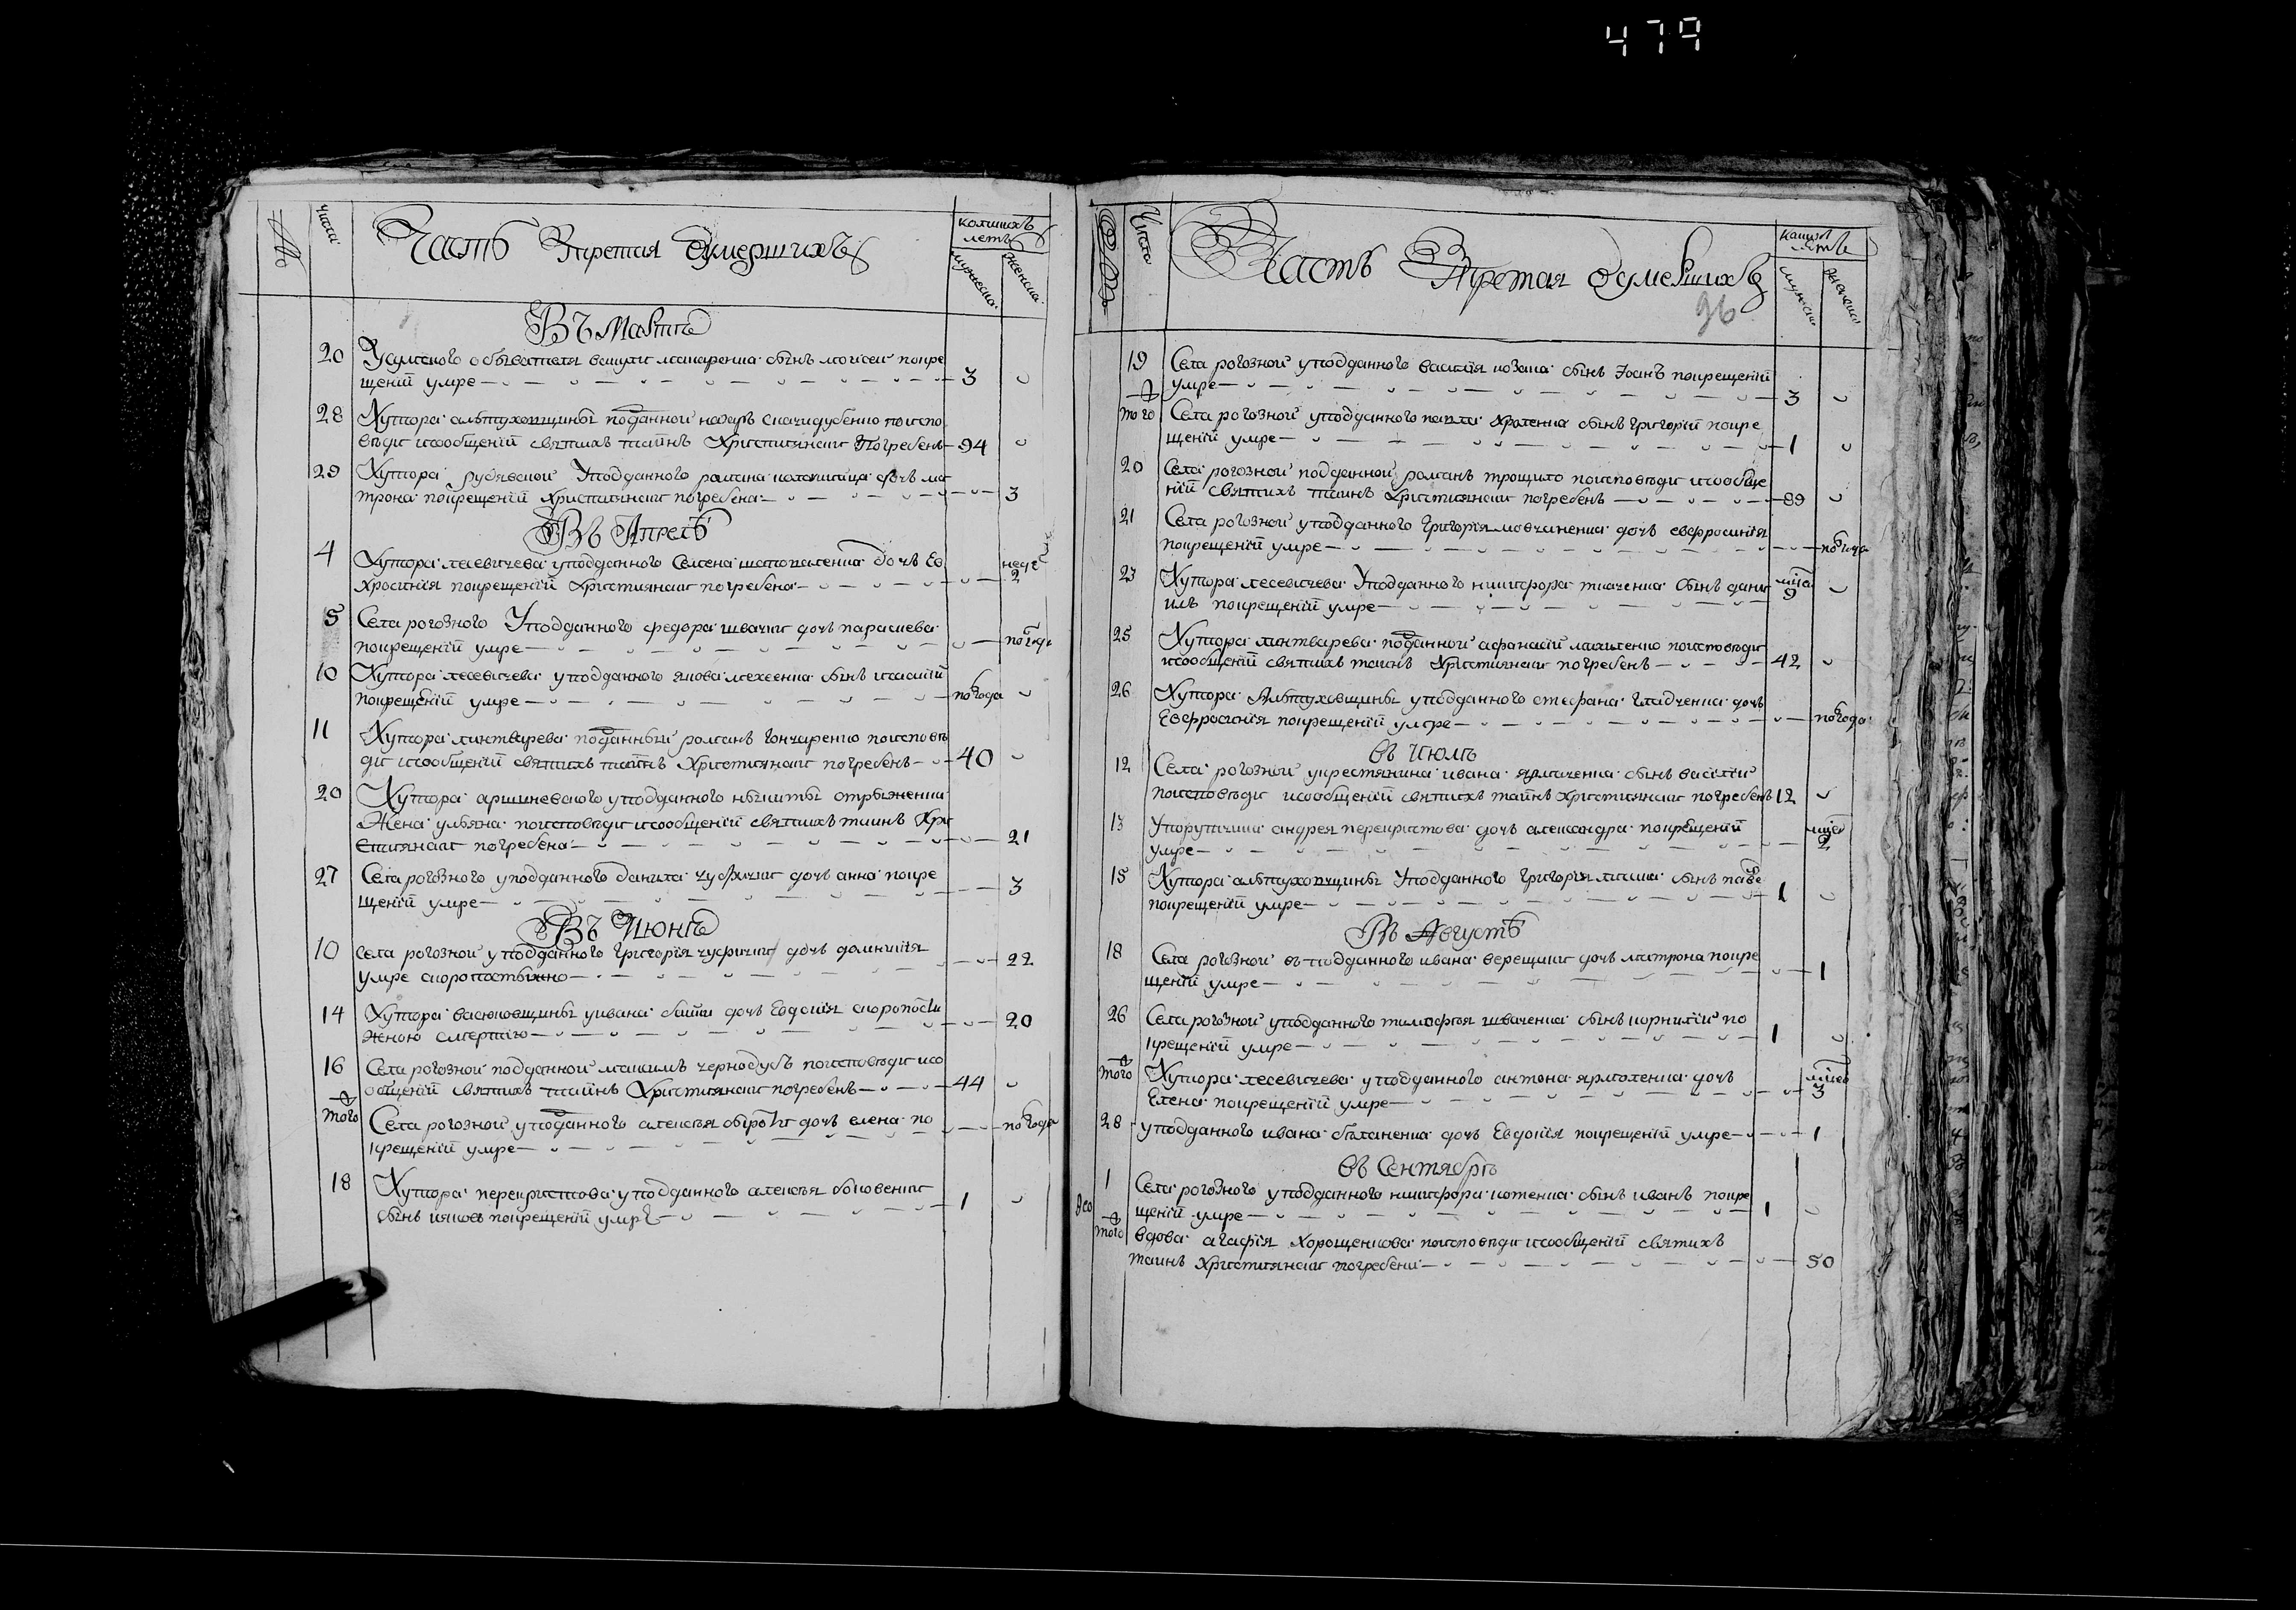 479
числа
Часть Третая Оумершихъ
коликихъ летъ
мужеска
женска
Въ Мартѣ
20 сынъ моисеи покре
щенїи умре 3
28 Хутора алтуховщины подданной по испо
вѣди исообщенїи святихъ таинъ Християнски Погребенъ 94
29 Хутора Уподданного романа дочъ ма
трона покрещенїи Християнски погребена 3
Въ Апрелѣ
4 Хутора лесевичева уподданного Семена дочъ Ев
хросинїя покрещенїи Християнски погребена недел 2
5 Села рогозного Уподданного федора швачки дочъ параскева
покрещенїи умре полгода
10 Хутора лесевичева уподданного якова мехеенка сынъ
покрещенїи умре полгода
11 Хутора линтварева подданный романъ гончаренко поисповѣ
ди исообщенїи святихъ таинъ Християнски погребенъ 40
20 Хутора уподданного никиты
Жена ульяна поисповѣди исообщенїи святихъ таинъ Хри
стиянски погребена 21
27 Села рогозного уподданного данила дочъ анна покре
щенїи умре 3
Въ Июнѣ
10 Села рогозной уподданного григорїя дочъ домникїя
умре скоропостыжно 22
14 Хутора васюковщины уивана дочъ Евдокїя скоропости
жною смертию 20
16 Села рогозной подданной максимъ чернодубъ поисповѣди исо
общенїи святихъ таинъ Християнски погребенъ 44
того Села рогозной уподданного алексѣя дочъ елена по
крещенїи умре полгода
18 Хутора перекристова уподданного алексѣя
сынъ ияковъ покрещенїи умре 1
Числа
Часть Третая Оумершихъ
летъ
96
19 Села рогозной уподданного василїя козака сынъ Іоанъ покрещенїи
умре 3
того Села рогозной уподданного сынъ григорїи покре
щенїи умре 1
20 Села рогозной подданной романъ трощило поисповѣди исообще
нїи святихъ таинъ Християнски погребенъ 89
21 Села рогозной уподданного григорїя мовчиненка дочъ евфросинїя
покрещенїи умре полгода
23 Хутора лесевичева Уподданного никифора ткаченка сынъ дани
илъ покрещенїи умре 9
25 Хутора линтварева подданной афанасїи михиленко поисповѣди
исообщенїи святихъ таинъ Християнски погребенъ 42
26 Хутора Алтуховщины уподданного стефана гладченка дочъ
Евфросинїя покрещенїи умре полгода
въ Июлѣ
12 Села рогозной укрестянина ивана сынъ василїи
поисповѣди исообщенїи святихъ таинъ Християнски погребенъ 12
13 Упорутчика андрея перекристова дочъ александра покрещенїи
умре 2
15 Хутора алтуховщины Уподданного григорїя сынъ павел
покрещенїи умре 1
Въ Августѣ
18 Села рогозной въподданного ивана верещаки дочъ матрона покре
щенїи умре 1
26 Села рогозной уподданного тимофѣя шваченка сынъ корнилїи по
крещенїи умре 1
того Хутора лесевичева уподданного антона ярмоленка дочъ
Елена покрещенїи умре 3
28 уподданного ивана дочъ Евдокїя покрещенїи умре 1
въ Сентябрѣ
1 Села рогозного уподданного никифора котенка сынъ иванъ покре
щенїи умре 1
того вдова агафїя Хорощенкова поисповѣди исообщенїи святихъ
таинъ Християнски погребена 50